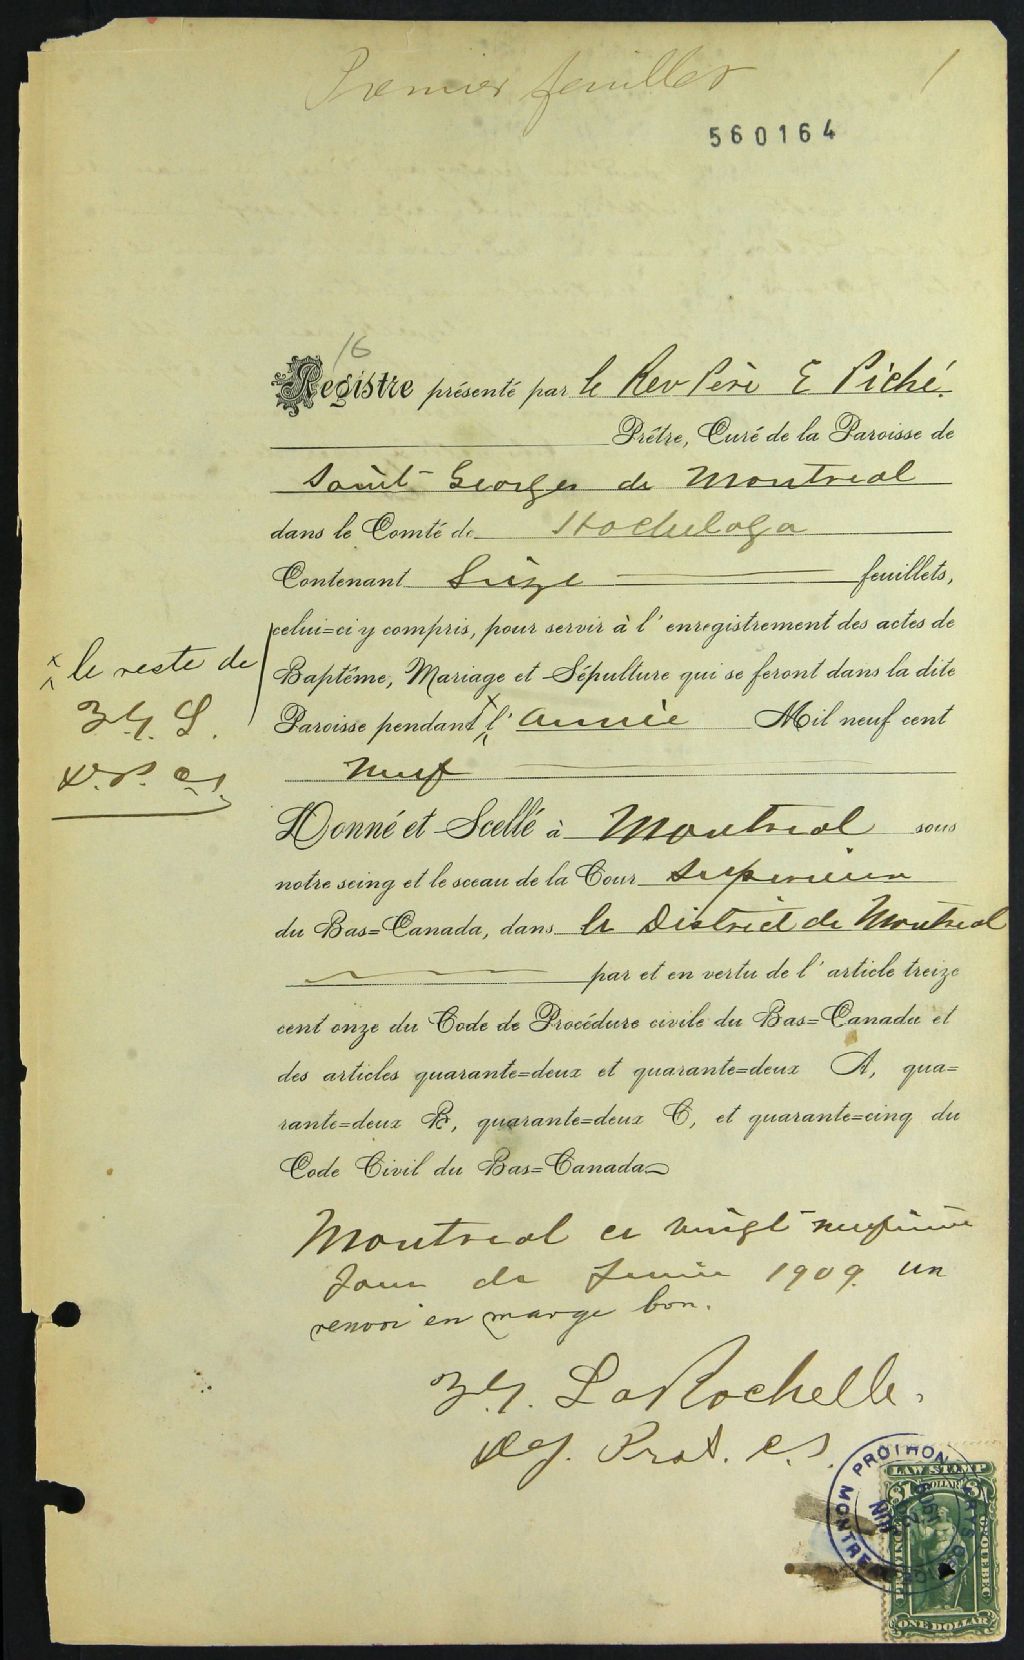 Premier feuillet 1
560164
16
Registre présenté par le Rev Père E Piché.
Prêtre, Curé de la Paroisse de
Saint Georges de Montreal
dans le Comté de Hochelaga
Contenant Seize feuillets,
celui=ci y compris, pour servir à l'enregistrement des actes de
Baptême, Mariage et Sépulture qui se feront dans la dite
Paroisse pendant l' année Mil neuf cent
neuf
x le reste de
Donné et Scellé à Montreal sous
notre seing et le sceau de la Cour Superieure
du Bas=Canada, dans le District de Montreal
par et en vertu de l'article treize
cent onze du Code de Procédure civile du Bas=Canada et
des articles quarante=deux et quarante=deux A, qua=
rante=deux B, quarante=deux C, et quarante=cinq du
Code Civil du Bas=Canada
Montreal ce vingt neuvième
Jour de 1909. un
renvoi en marge bon.
LaRochelle.
Dep. Prot. C.S.
LAW STAMP
$1 DOLLAR $1
PROVINCE OF QUEBEC
ONE DOLLAR